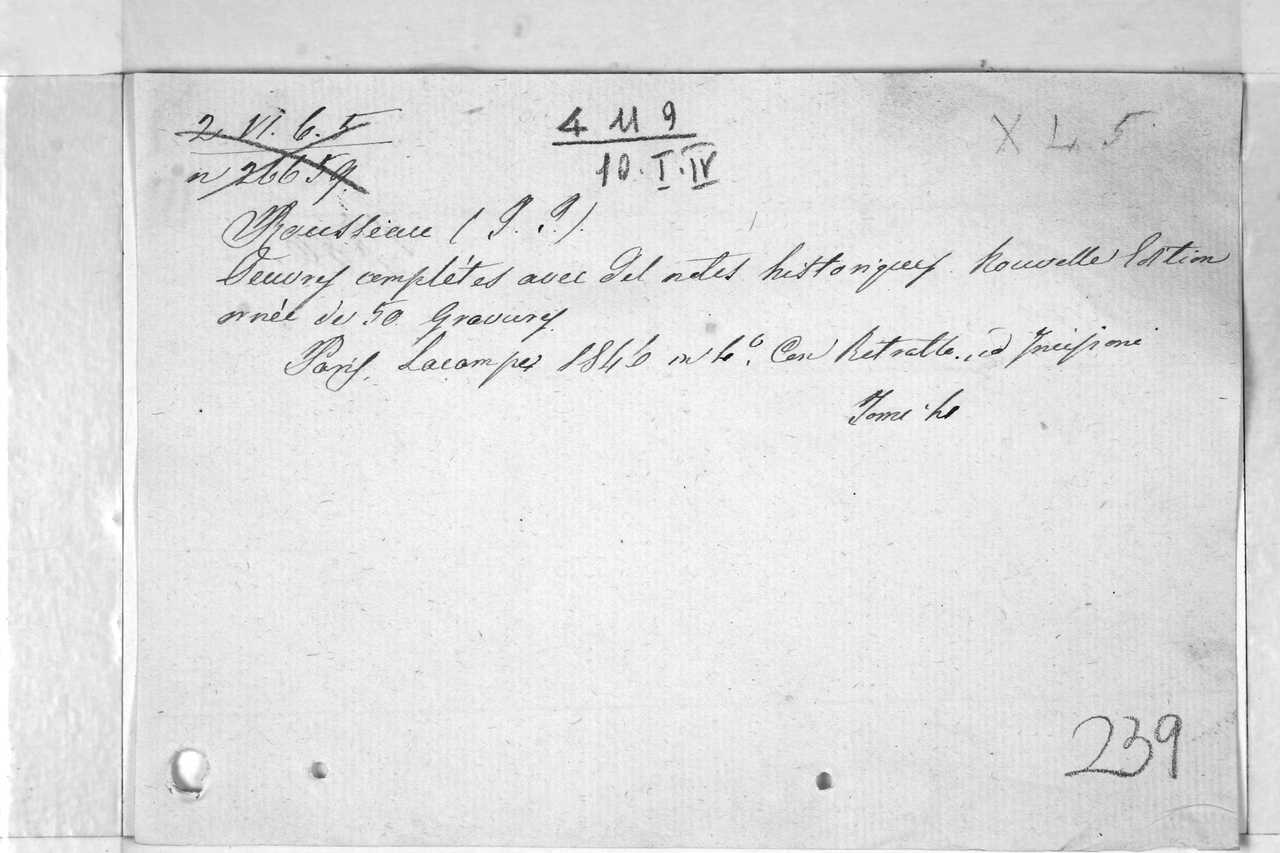 2. VI. 6. 5
n 26659.
4 M 9
10. I. IV
X L 5
Rousseau (J. J.).
Oeuvres complétes avec des notes historiques. Nouvelle Edition
ornée de 50 Gravures
Paris. Lacampe 1846 in 4º. Con Ritratto, ed Incisioni
Tomi 4
239